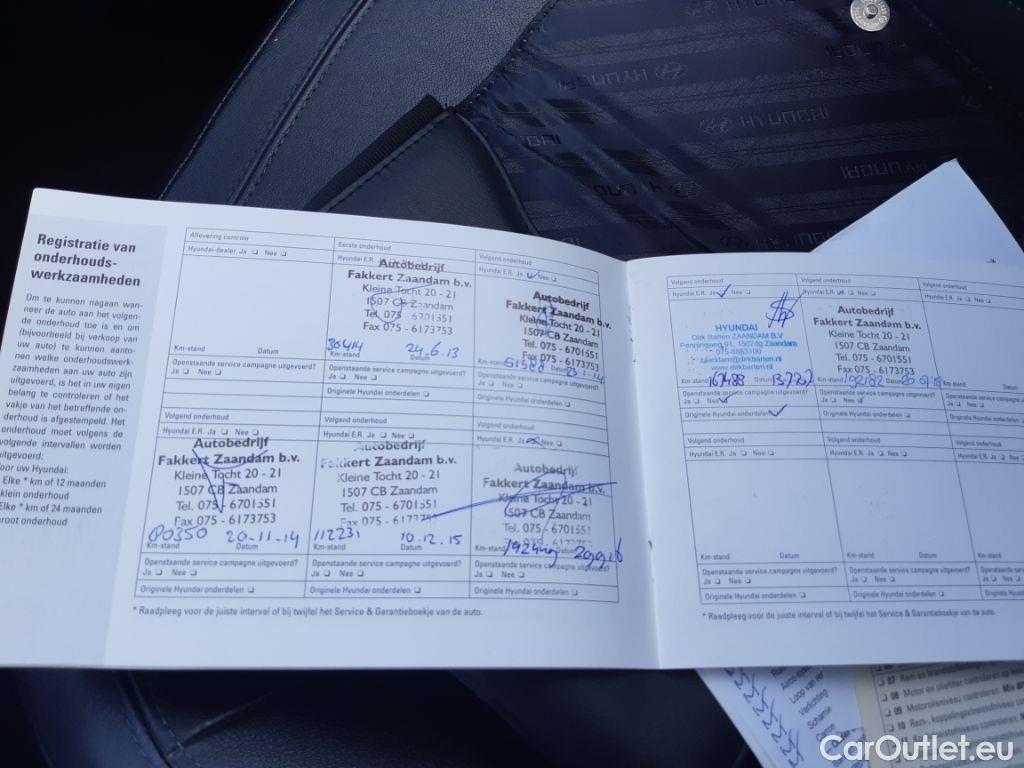 HYUNDAI
HYUNDAI
HYUNDAI
Registratie van
onderhouds-
werkzaamheden
Om te kunnen nagaan wan-
neer de auto aan het volgen-
de onderhoud toe is en om
(bijvoorbeeld bij verkoop van
uw auto) te kunnen aanto-
nen welke onderhoudswerk-
zaamheden aan uw auto zijn
uitgevoerd, is het in uw eigen
belang te controleren of het
vakje van het betreffende on-
derhoud is afgestempeld. Het
onderhoud moet volgens de
volgende intervallen worden
uitgevoerd:
oor uw Hyundai:
Elke * km of 12 maanden
klein onderhoud
Elke * km of 24 maanden
root onderhoud
Aflevering controle
Hyundai-dealer Ja Nee
Km-stand Datum
Openstaande service campagne uitgevoerd?
Eerste onderhoud
Hyundai E.R.
Autobedrijf
Fakkert Zaandam b.v.
Kleine Tocht 20 - 21
1507 CB Zaandam
Tel. 075 - 6701551
Fax 075 - 6173753
24.6.13
Km-stand Datum
Openstaande service campagne uitgevoerd?
Ja Nee
Originele Hyundai onderdelen
Volgend onderhoud
Hyundai E.R. Ja Nee
Autobedrijf
Fakkert Zaandam b.v.
Kleine Tocht 20 - 21
1507 CB Zaandam
Tel. 075 - 6701551
Fax 075 - 6173753
Km-stand Datum
Openstaande service campagne uitgevoerd?
Ja Nee
Originele Hyundai onderdelen
Volgend onderhoud
Hyundai E.R. Ja Nee
Autobedrijf
Fakkert Zaandam b.v.
Kleine Tocht 20 - 21
1507 CB Zaandam
Tel. 075 - 6701551
Fax 075 - 6173753
80350 20-11-14
Km-stand Datum
Openstaande service campagne uitgevoerd?
Ja Nee
Originele Hyundai onderdelen
Volgend onderhoud
Hyundai E.R. Ja Nee
Autobedrijf
Fakkert Zaandam b.v.
Kleine Tocht 20 - 21
1507 CB Zaandam
Tel. 075 - 6701551
Fax 075 - 6173753
112231 10.12.15
Km-stand Datum
Openstaande service campagne uitgevoerd?
Ja Nee
Originele Hyundai onderdelen
Volgend onderhoud
Hyundai E.R. Ja Nee
Autobedrijf
Fakkert Zaandam b.v.
Kleine Tocht 20 - 21
1507 CB Zaandam
Tel. 075 - 6701551
Km-stand Datum
Openstaande service campagne uitgevoerd?
Ja Nee
Originele Hyundai onderdelen
* Raadpleeg voor de juiste interval of bij twijfel het Service & Garantieboekje van de auto.
Volgend onderhoud
Hyundai E.R. Ja Nee
HYUNDAI
Dirk Barten ZAANDAM B.V
Penningweg 91, 1507dg Zaandam
075-8883100
zaandam@dirkbarten.nl
www.dirkbarten.nl
Km-stand Datum
Openstaande service campagne uitgevoerd?
Ja Nee
Originele Hyundai onderdelen
Volgend onderhoud
Hyundai E.R. Ja Nee
Autobedrijf
Fakkert Zaandam b.v.
Kleine Tocht 20 - 21
1507 CB Zaandam
Tel. 075 - 6701551
Fax 075 - 6173753
Km-stand 192182 Datum
Openstaande service campagne uitgevoerd?
Ja Nee
Originele Hyundai onderdelen
Volgend onderhoud
Hyundai E.R. Ja Nee
Km-stand
Openstaande service campagne
Ja Nee
Originele Hyundai onderdelen
Volgend onderhoud
Hyundai E.R. Ja Nee
Km-stand Datum
Openstaande service campagne uitgevoerd?
Ja Nee
Originele Hyundai onderdelen
Volgend onderhoud
Hyundai E.R. Ja Nee
Km-stand Datum
Openstaande service campagne uitgevoerd?
Ja Nee
Originele Hyundai onderdelen
Volgend onderhoud
Hyundai E.R. Ja Nee
Km-stand
Openstaande service
Ja Nee
Originele Hyundai
* Raadpleeg voor de juiste interval of bij twijfel het Service & Garantieboekje van de auto.
Verlichting
07 Rem en
08 Motor en oliefilter controleren op
09 Motorolieniveau controleren
10 Rem-, koppelingsvloeistofniveau
CarOutlet.eu